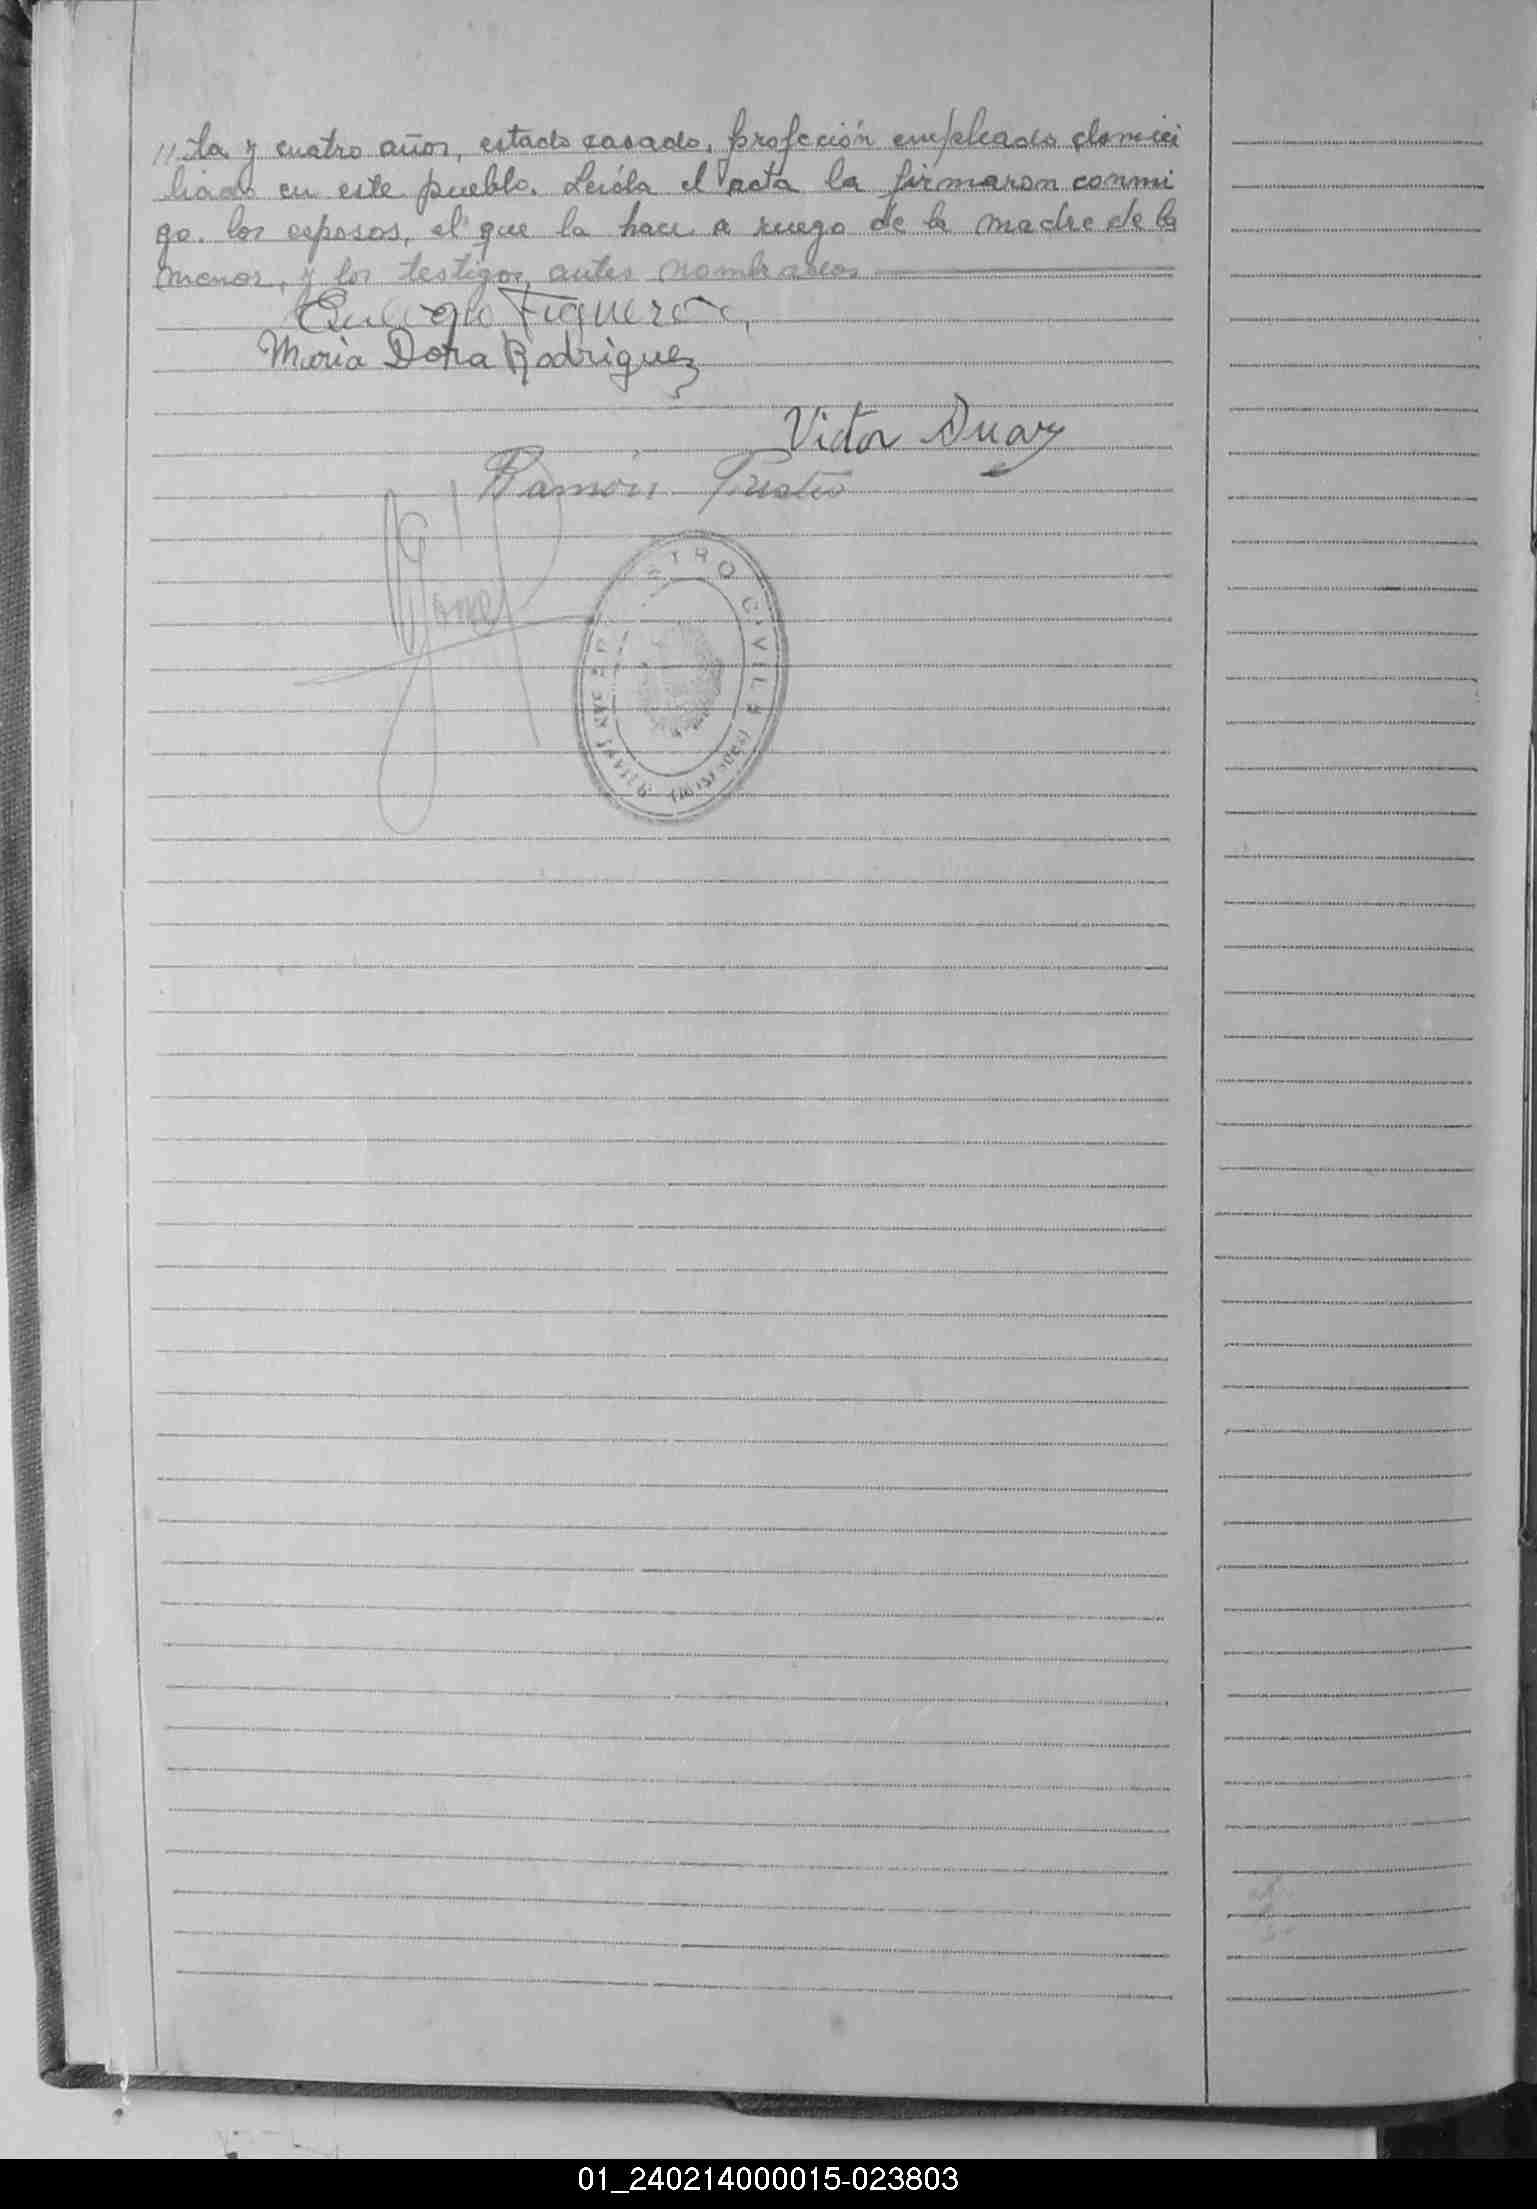 //ta y cuatro años, estado casado, profeción empleado domici
liado en este pueblo. Leída el acta la firmaron conmi
go. los esposos, el que la hace a ruego de la madre de la
menor, y los testigos antes nombrados
Figueroa
Maria Dora Rodriguez
Victor
Ramón
REGISTRO CIVIL
SAN JAVIER (MISIONES)
01_240214000015-023803